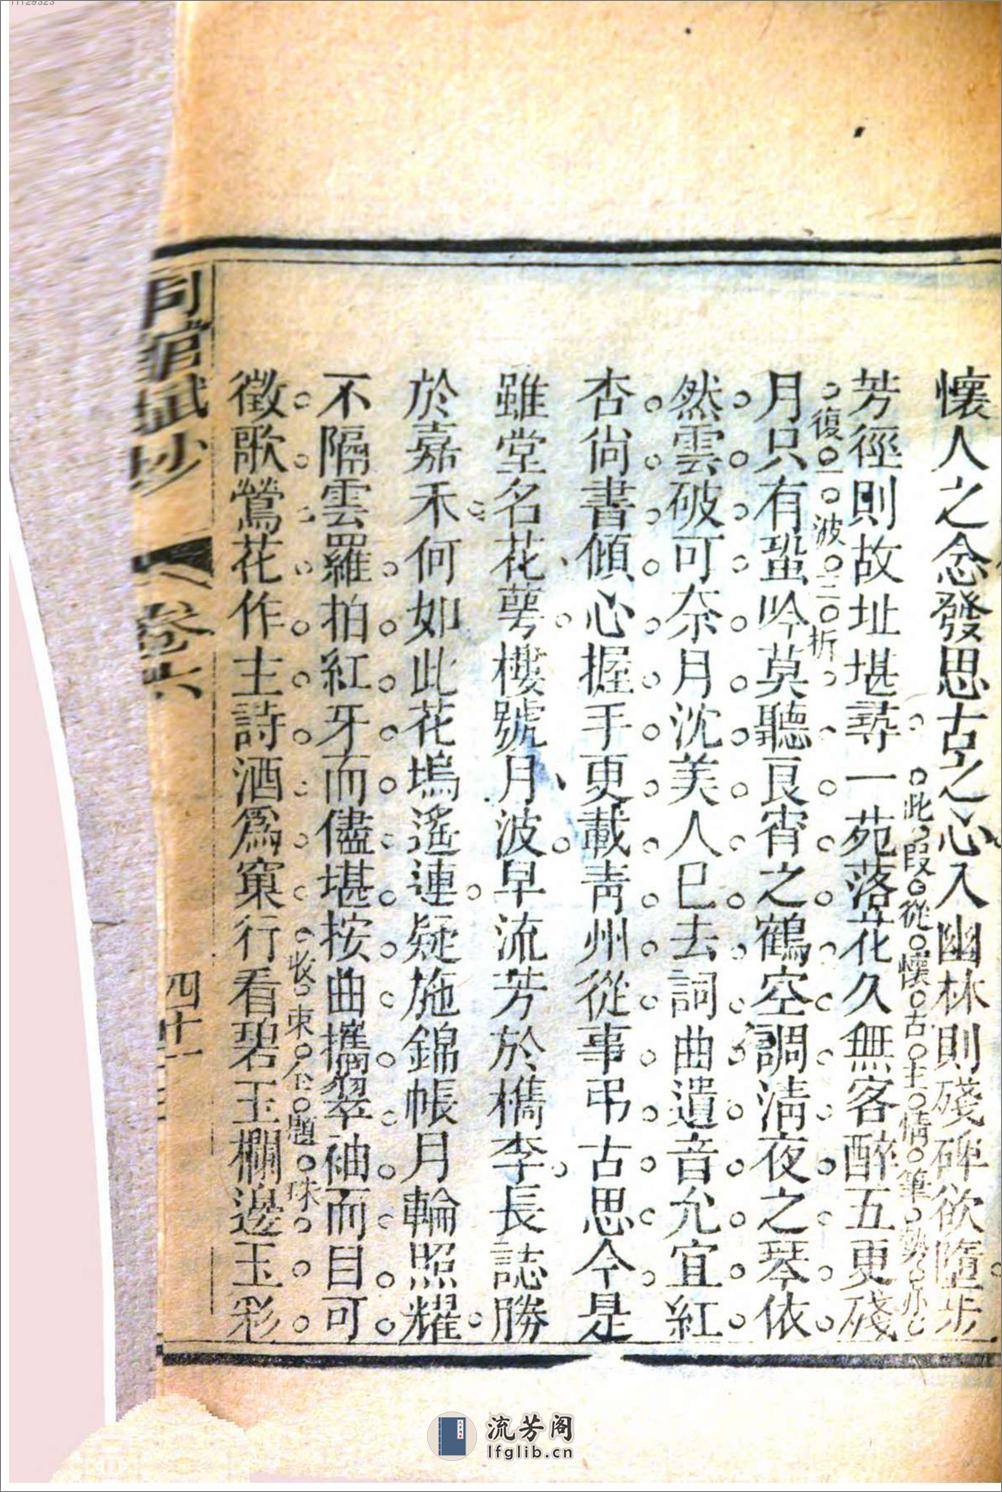 懷人之念發思古之心入幽林則殘碑欲墮步
此段從懷古生情筆勢亦
芳徑則故址堪尋一苑落花久無客醉五更殘
復一波三折
月只有蛩吟莫聽良宵之鶴空調清夜之琴依
然雲破可奈月沈美人已去詞曲遺音允宜紅
杏尚書傾心握手更載青州從事弔古思今是
雖堂名花萼樓號月波早流芳於檇李長誌勝
於嘉禾何如此花塢遙連疑施錦帳月輪照耀
不隔雲羅拍紅牙而儘堪按曲攜翠袖而目可
收束全題
徵歌鶯花作主詩酒爲窠行看碧玉欄邊玉彩
同館賦抄 卷六 四十一
流芳阁
lfglib.cn
11129323